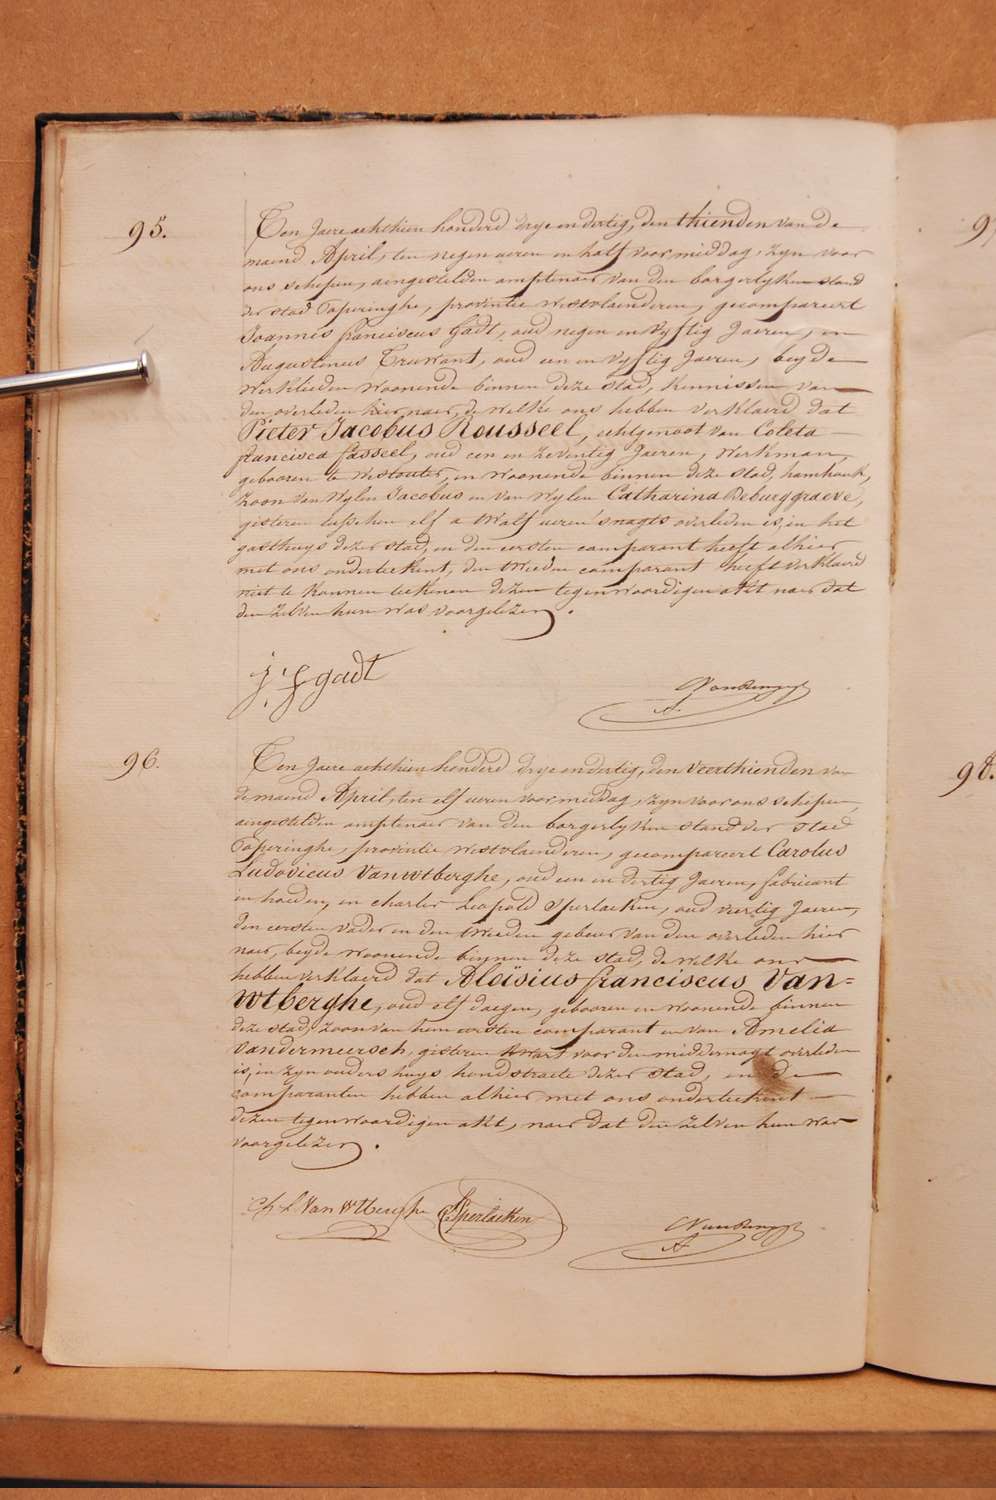 95.
Ten Jaere achthien honderd drye en dertig, den thienden van de
maend April, ten negen ueren en half voor middag, zyn voor
ons schepen, aengestelden amptenaer van den borgerlyken stand
der stad Poperinghe, provintie Westvlaenderen, gecompareert
Joannis franciscus Gadt, oud negen en vyftig Jaeren, en
Augustinus Truwant, oud een en vyftig Jaeren, beyde
werklieden woonende binnen deze stad, kennissen van
den overleden hier naer, de welke ons hebben verklaerd dat
Pieter Jacobus Rousseel, echtgenoot van Coleta
francisca fasseel, oud een en zeventig Jaeren, werkman,
gebooren te Westouter, en woonende binnen deze stad, hamhouk,
zoon van wylen Jacobus en van wylen Catharina Deburggraeve,
gisteren tusschen elf a twalf ueren 'snagts overleden is, in het
gasthuys dezer stad, en den eersten comparant heeft alhier
met ons onderteekent, den tweeden comparant heeft verklaerd
niet te konnen teekenen dezen tegenwoordigen akt naer dat
den zelven hun was voorgelezen.
j. f gadt
96.
Ten Jaere achthien honderd drye en dertig, den veerthienden van
de maend April, ten elf ueren voor middag, zyn voor ons schepen,
aengestelden amptenaer van den borgerlyken stand der stad
Poperinghe, provintie Westvlaenderen, gecompareert Carolus
Ludovicus Vanwtberghe, oud een en dertig Jaeren, fabricant
in hoeden, en charles Leopold Sperlaeken, oud veertig Jaeren,
den eersten vader en den tweeden gebuer van den overleden hier
naer, beyde woonende binnen deze stad, de welke ons
hebben verklaerd dat Aloïsius franciscus Van=
wtberghe, oud elf daegen, gebooren en woonende binnen
deze stad, zoon van hem eersten comparant en van Amelia
Vandermeersch, gisteren kwart voor den middernagt overleden
is, in zyn ouders huys hondstraete dezer stad, en de
comparanten hebben alhier met ons onderteekent
dezen tegenwoordigen akt, naer dat den zelven hun was
voorgelezen.
Ch L Van Wtberghe Sperlaeken
98.